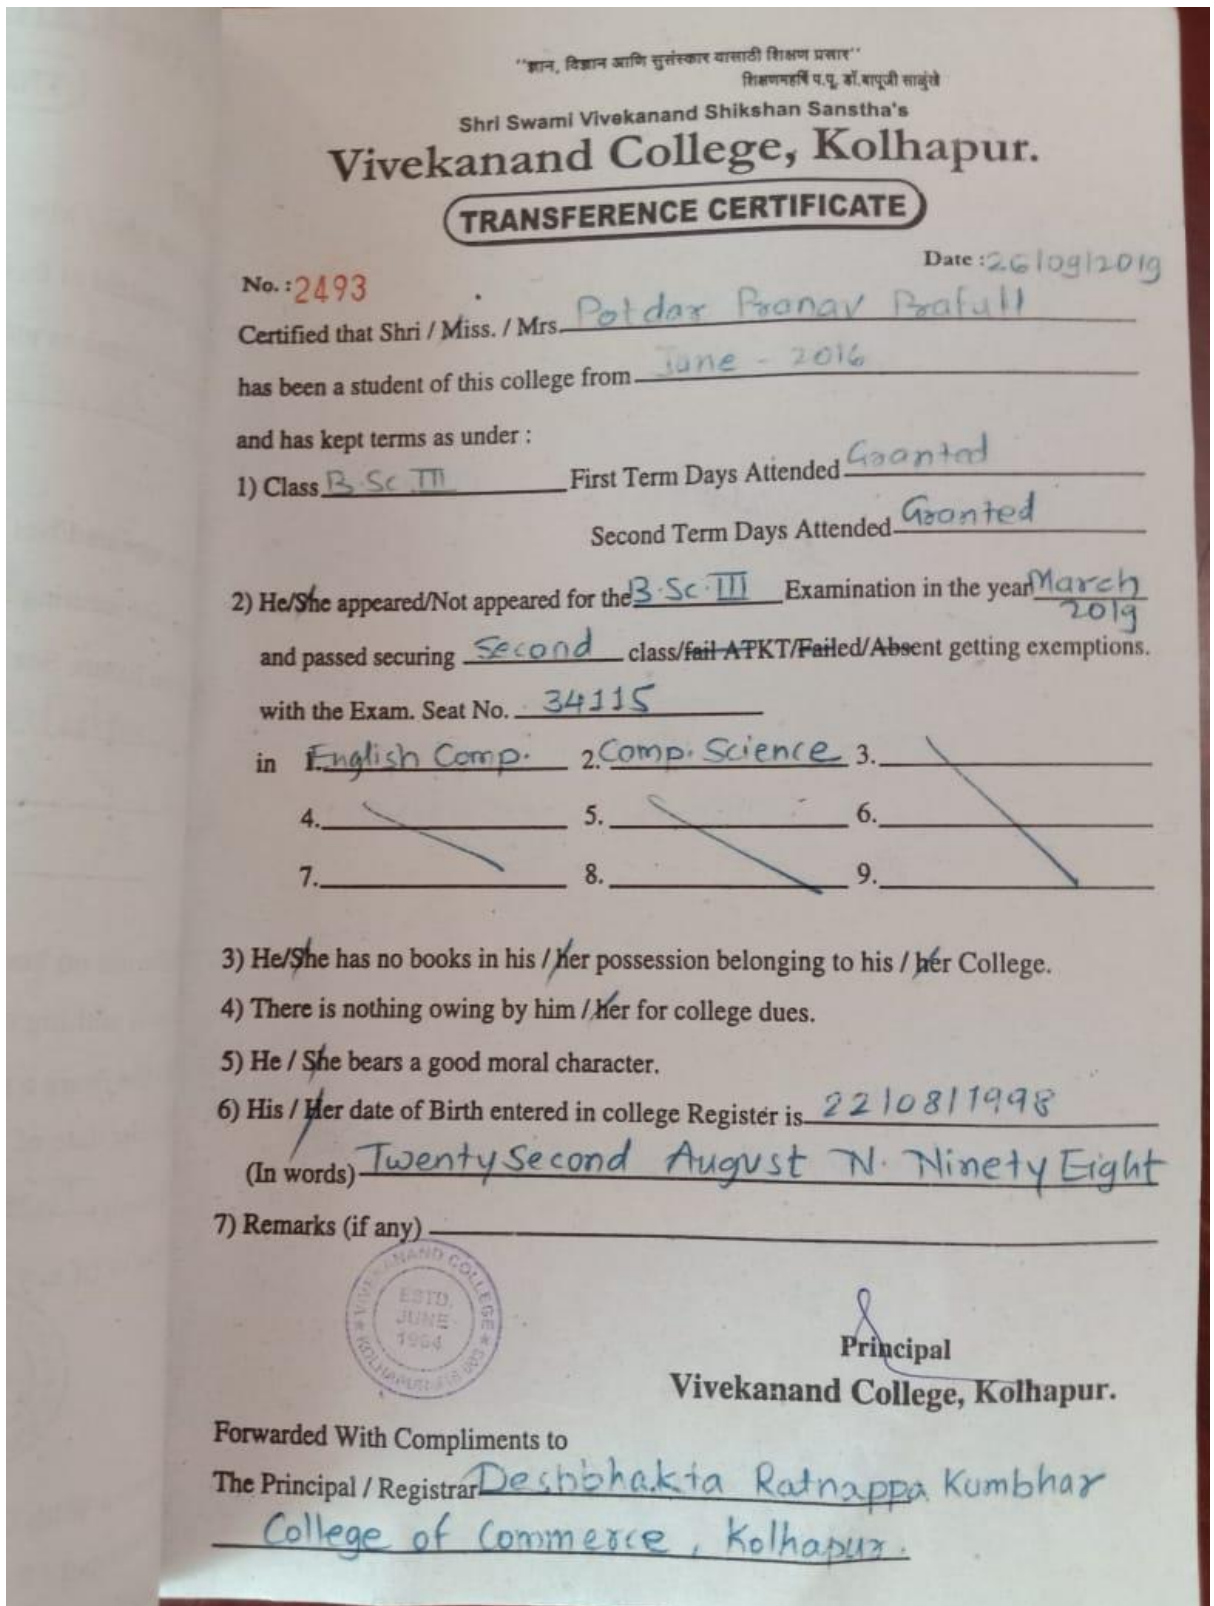 "ज्ञान, विज्ञान आणि सुसंस्कार यासाठी शिक्षण प्रसार"
शिक्षणमहर्षि प.पू. डॉ.बापूजी साळुंखे
Shri Swami Vivekanand Shikshan Sanstha's
Vivekanand College, Kolhapur.
TRANSFERENCE CERTIFICATE
Date : 26/09/2019
No. : 2493
Certified that Shri / Miss. / Mrs. Potdar Pranav Prafull
has been a student of this college from June - 2016
and has kept terms as under :
1) Class B.Sc. III First Term Days Attended Granted
Second Term Days Attended Granted
2) He/She appeared/Not appeared for the B.Sc. III Examination in the year March 2019
and passed securing Second class/fail ATKT/Failed/Absent getting exemptions.
with the Exam. Seat No. 34115
in 1. English Comp. 2. Comp. Science 3.
4. 5. 6.
7. 8. 9.
3) He/She has no books in his / her possession belonging to his / her College.
4) There is nothing owing by him / her for college dues.
5) He / She bears a good moral character.
6) His / Her date of Birth entered in college Register is 22/08/1998
(In words) Twenty Second August N. Ninety Eight
7) Remarks (if any)
VIVEKANAND COLLEGE
ESTD.
JUNE
1964
Principal
Vivekanand College, Kolhapur.
Forwarded With Compliments to
The Principal / Registrar Deshbhakta Ratnappa Kumbhar
College of Commerce, Kolhapur.